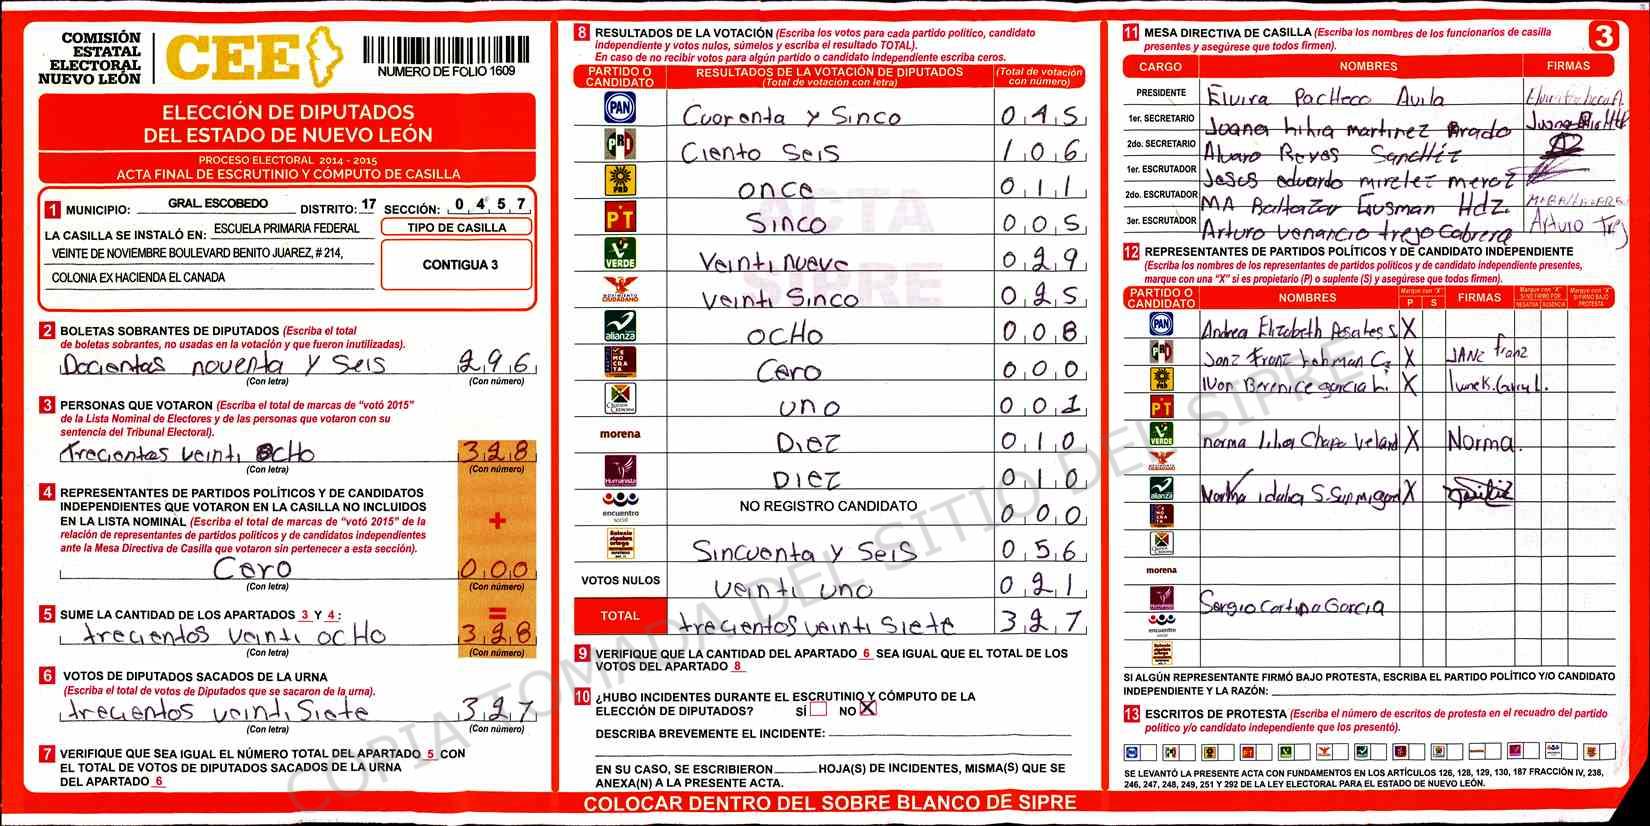 COMISIÓN
ESTATAL
ELECTORAL
NUEVO LEÓN
CEE
NUMERO DE FOLIO 1609
ELECCIÓN DE DIPUTADOS
DEL ESTADO DE NUEVO LEÓN
PROCESO ELECTORAL 2014 - 2015
ACTA FINAL DE ESCRUTINIO Y CÓMPUTO DE CASILLA
1 MUNICIPIO: GRAL. ESCOBEDO DISTRITO: 17 SECCIÓN: 0 4 5 7
LA CASILLA SE INSTALÓ EN: ESCUELA PRIMARIA FEDERAL
VEINTE DE NOVIEMBRE BOULEVARD BENITO JUAREZ, # 214,
COLONIA EX HACIENDA EL CANADA
TIPO DE CASILLA
CONTIGUA 3
2 BOLETAS SOBRANTES DE DIPUTADOS (Escriba el total
de boletas sobrantes, no usadas en la votación y que fueron inutilizadas).
Docientas noventa y Seis 2 9 6
(Con letra) (Con número)
3 PERSONAS QUE VOTARON (Escriba el total de marcas de "votó 2015"
de la Lista Nominal de Electores y de las personas que votaron con su
sentencia del Tribunal Electoral).
Trecientas veinti ocHo 3 2 8
(Con letra) (Con número)
4 REPRESENTANTES DE PARTIDOS POLÍTICOS Y DE CANDIDATOS
INDEPENDIENTES QUE VOTARON EN LA CASILLA NO INCLUIDOS
EN LA LISTA NOMINAL (Escriba el total de marcas de "votó 2015" de la
relación de representantes de partidos politicos y de candidatos independientes
ante la Mesa Directiva de Casilla que votaron sin pertenecer a esta sección).
+
Cero 0 0 0
(Con letra) (Con número)
=
5 SUME LA CANTIDAD DE LOS APARTADOS 3 Y 4 :
trecientos veinti ocHo 3 2 8
(Con letra) (Con número)
6 VOTOS DE DIPUTADOS SACADOS DE LA URNA
(Escriba el total de votos de Diputados que se sacaron de la urna).
trecientos veinti Siete 3 2 7
(Con letra) (Con número)
7 VERIFIQUE QUE SEA IGUAL EL NÚMERO TOTAL DEL APARTADO 5 CON
EL TOTAL DE VOTOS DE DIPUTADOS SACADOS DE LA URNA
DEL APARTADO 6
8 RESULTADOS DE LA VOTACIÓN (Escriba los votos para cada partido político, candidato
independiente y votos nulos, súmelos y escriba el resultado TOTAL).
En caso de no recibir votos para algún partido o candidato independiente escriba ceros.
PARTIDO O CANDIDATO RESULTADOS DE LA VOTACIÓN DE DIPUTADOS (Total de votación con letra) (Total de votación con número)
PAN Cuarenta y Sinco 0 4 5
PRI Ciento Seis 1 0 6
PRD once 0 1 1
PT Sinco 0 0 5
VERDE Veinti nueve 0 2 9
MOVIMIENTO CIUDADANO Veinti Sinco 0 2 5
alianza ocHo 0 0 8
DEMOCRATA Cero 0 0 0
Cruzada Ciudadana uno 0 0 1
morena Diez 0 1 0
Humanista Diez 0 1 0
encuentro social NO REGISTRO CANDIDATO 0 0 0
Sincuenta y Seis 0 5 6
VOTOS NULOS veinti uno 0 2 1
TOTAL trecientos veinti siete 3 2 7
ACTA
SIPRE
9 VERIFIQUE QUE LA CANTIDAD DEL APARTADO 6 SEA IGUAL QUE EL TOTAL DE LOS
VOTOS DEL APARTADO 8
10 ¿HUBO INCIDENTES DURANTE EL ESCRUTINIO Y CÓMPUTO DE LA
ELECCIÓN DE DIPUTADOS? SÍ NO X
DESCRIBA BREVEMENTE EL INCIDENTE:
EN SU CASO, SE ESCRIBIERON HOJA(S) DE INCIDENTES, MISMA(S) QUE SE
ANEXA(N) A LA PRESENTE ACTA.
COLOCAR DENTRO DEL SOBRE BLANCO DE SIPRE
11 MESA DIRECTIVA DE CASILLA (Escriba los nombres de los funcionarios de casilla
presentes y asegúrese que todos firmen).
3
CARGO NOMBRES FIRMAS
PRESIDENTE Elvira Pacheco Avila
1er. SECRETARIO Juana lilia martinez Prado
2do. SECRETARIO Alvaro Reyes Sanchez
1er. ESCRUTADOR Jesus eduardo
2do. ESCRUTADOR MA Baltazar Gusman Hdz.
3er. ESCRUTADOR Arturo venancio trejo Cabrera Arturo Trej
12 REPRESENTANTES DE PARTIDOS POLÍTICOS Y DE CANDIDATO INDEPENDIENTE
(Escriba los nombres de los representantes de partidos politicos y de candidato independiente presentes,
marque con una "X" si es propietario (P) o suplente (S) y asegúrese que todos firmen).
PARTIDO O CANDIDATO NOMBRES Marque con "X" P S FIRMAS Marque con "X" SI NO FIRMÓ POR NEGATIVA AUSENCIA Marque con "X" SI FIRMÓ BAJO PROTESTA
PAN Andrea Elizabeth S. X
PRI Janz Franz C. X JANZ Franz
PRD Ivon Berenice garcia L. X
PT
VERDE norma lilia Chapa X Norma.
alianza Norma idalia S. X
DEMOCRATA
morena
Humanista Sergio Cortina Garcia
encuentro social
SI ALGÚN REPRESENTANTE FIRMÓ BAJO PROTESTA, ESCRIBA EL PARTIDO POLÍTICO Y/O CANDIDATO
INDEPENDIENTE Y LA RAZÓN:
13 ESCRITOS DE PROTESTA (Escriba el número de escritos de protesta en el recuadro del partido
político y/o candidato independiente que los presentó).
SE LEVANTÓ LA PRESENTE ACTA CON FUNDAMENTOS EN LOS ARTÍCULOS 126, 128, 129, 130, 187 FRACCIÓN IV, 238,
246, 247, 248, 249, 251 Y 292 DE LA LEY ELECTORAL PARA EL ESTADO DE NUEVO LEÓN.
COPIA TOMADA DEL SITIO DEL SIPRE